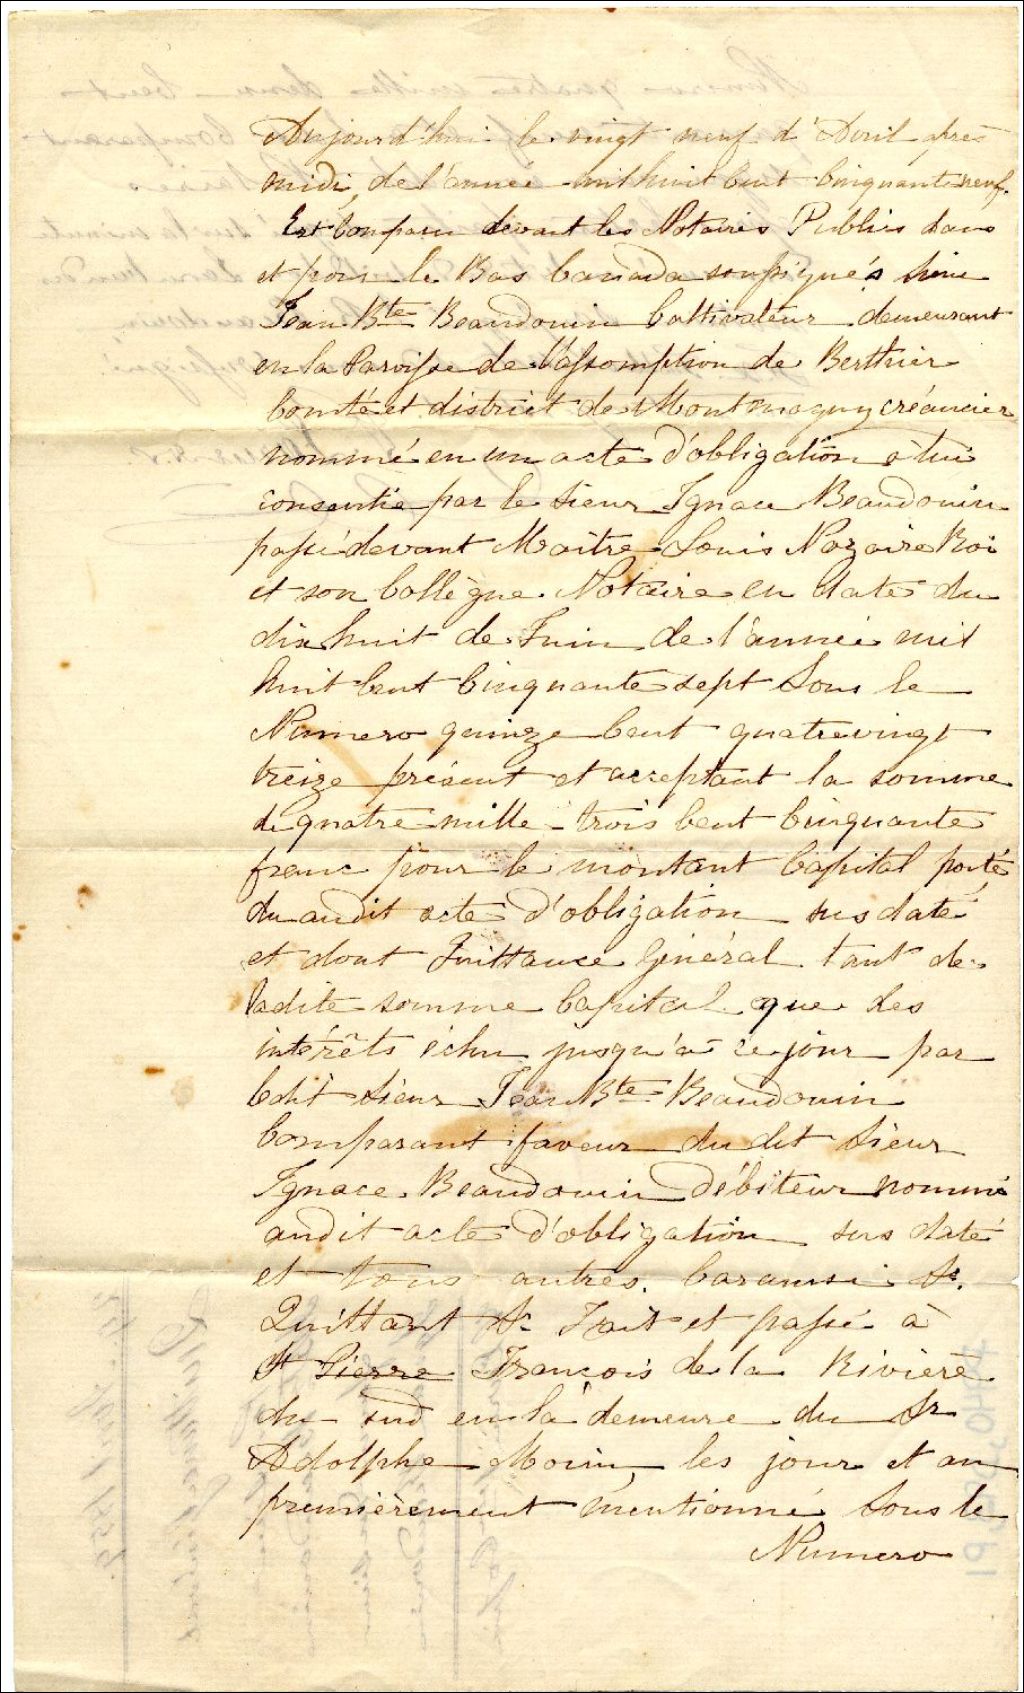 Aujourd'hui le vingt neuf d'Avril après
midi, de l'année mil huit Cent Cinquante neuf.
Est Comparu devant les Notaires Publics dans
et pour le Bas Canada soussignés Sieur
Jean Bte Beaudouin Cultivateur demeurant
en la Paroisse de l'assomption de Berthier
Comté et district de Montmagny créancier
nommé en un acte d'obligation à lui
consentie par le Sieur Ignace Beaudouin
passé devant Maître Louis Nazaire Roi
et son Collègue Notaire en date du
dix huit de Juin de l'année mil
huit Cent Cinquante sept Sous le
Numero quinze Cent quatrevingt
treize présent et acceptant la somme
de quatre mille trois Cent Cinquante
franc pour le montant Capital porté
du audit acte d'obligation sus daté
et dont Quittance Général tant de
ladite somme Capital que des
intérêts échu jusqu'à ce jour par
ledit Sieur Jean Bte Beaudouin
Comparant faveur du dit Sieur
Ignace Beaudouin débiteur nommé
audit acte d'obligation sus daté
et tous autres. Car ainsi &.
Quittant &. Fait et passé à
St Pierre François de la Rivière
du sud en la demeure du Sr
Adolphe Morin, les jour et an
premièrement mentionné Sous le
Numero